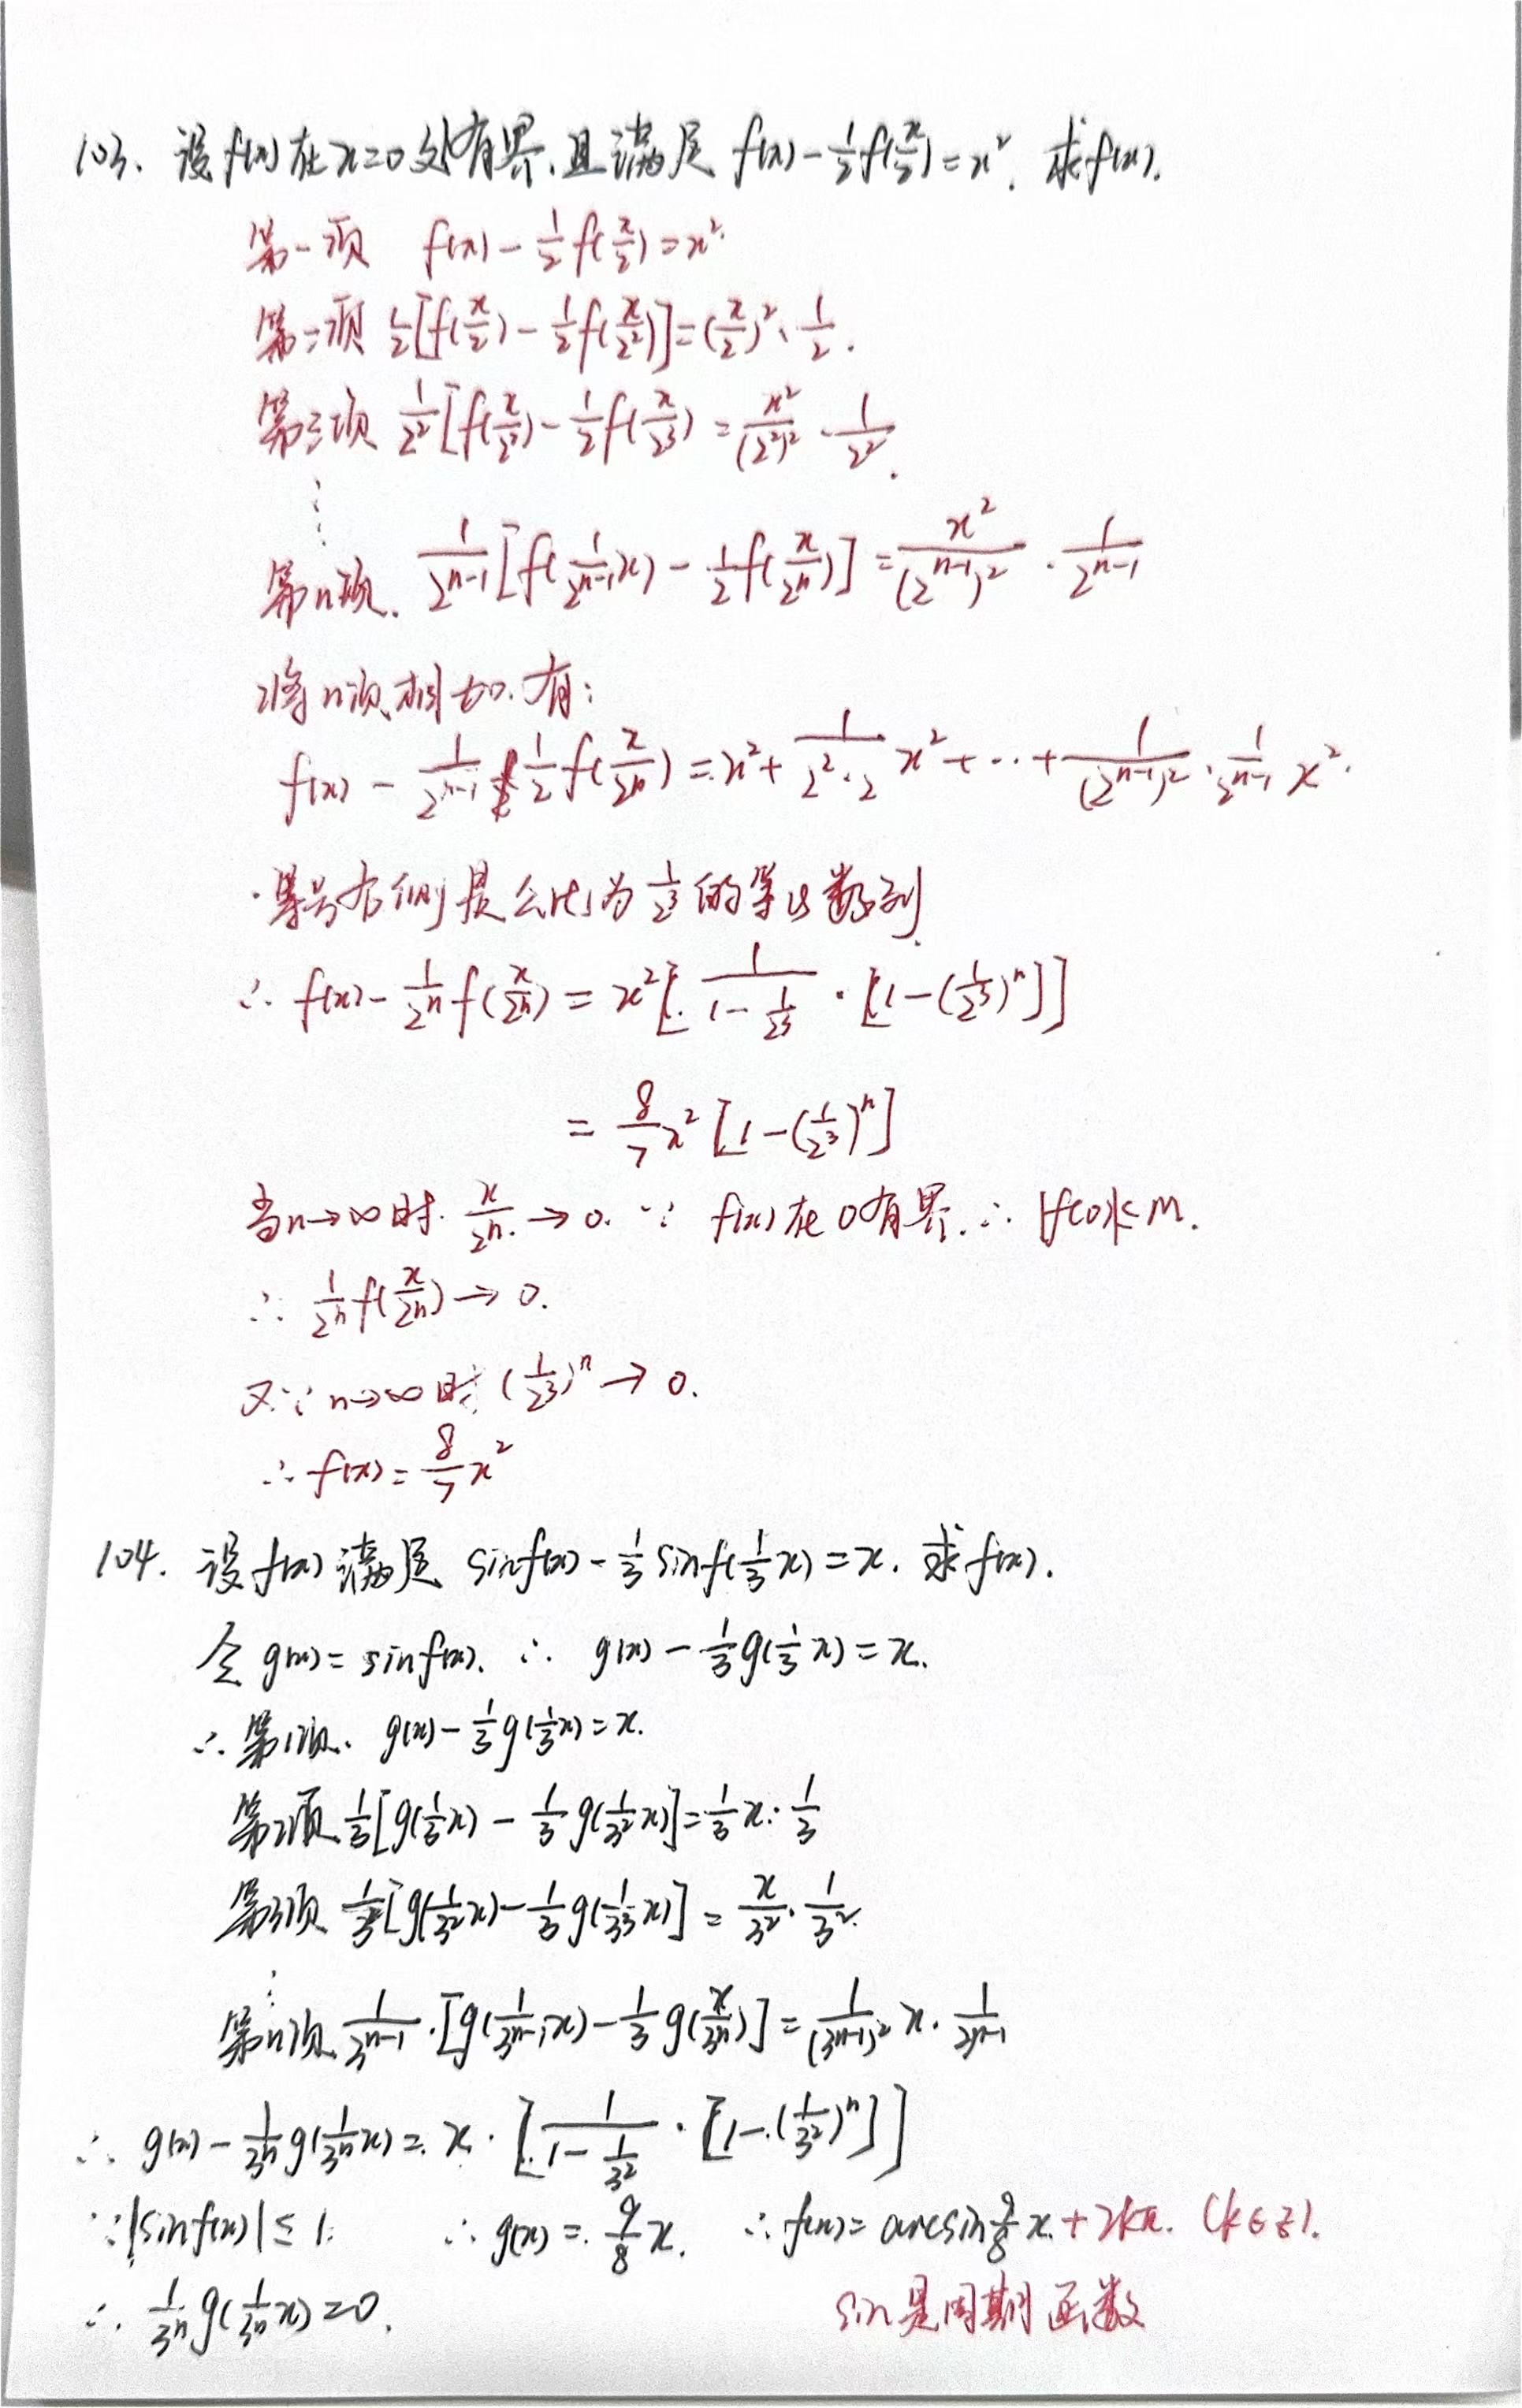 103. 设f(x)在x=0处有界,且满足 f(x)-1/2f(x/2)=x². 求f(x).
第一项 f(x)-1/2f(x/2)=x².
第二项 1/2[f(x/2)-1/2f(x/2²)]=(x/2)²·1/2.
第三项 1/2²[f(x/2²)-1/2f(x/2³)=x²/(2²)²·1/2².
⋮
第n项. 1/2ⁿ⁻¹[f(1/2ⁿ⁻¹x)-1/2f(x/2ⁿ)]=x²/(2ⁿ⁻¹)²·1/2ⁿ⁻¹
将n项相加.有:
f(x)-1/2ⁿ⁻¹ 1/2f(x/2ⁿ)=x²+1/(2²·2)x²+…+1/(2ⁿ⁻¹)²·1/2ⁿ⁻¹x².
·等号右侧是公比为1/2³的等比数列.
∴ f(x)-1/2ⁿf(x/2ⁿ)=x²[1/(1-1/2³)·[1-(1/2³)ⁿ]]
=8/7x²[1-(1/2³)ⁿ]
当n→∞时. x/2ⁿ→0. ∵ f(x)在0有界.∴ |f(0)|<M.
∴ 1/2ⁿf(x/2ⁿ)→0.
又∵ n→∞时(1/2³)ⁿ→0.
∴ f(x)=8/7x²
104. 设f(x)满足 sinf(x)-1/3sinf(1/3x)=x. 求f(x).
令g(x)=sinf(x). ∴ g(x)-1/3g(1/3x)=x.
∴ 第1项. g(x)-1/3g(1/3x)=x.
第2项 1/3[g(1/3x)-1/3g(1/3²x)]=1/3x·1/3
第3项 1/3²[g(1/3²x)-1/3g(1/3³x)]=x/3²·1/3².
⋮
第n项 1/3ⁿ⁻¹·[g(1/3ⁿ⁻¹x)-1/3g(x/3ⁿ)]=1/(3ⁿ⁻¹)²x·1/3ⁿ⁻¹
∴ g(x)-1/3ⁿg(1/3ⁿx)=x·[1/(1-1/3²)·[1-(1/3²)ⁿ]]
∵|sinf(x)|≤1. ∴ g(x)=9/8x. ∴ f(x)=arcsin9/8x+2kπ. (k∈z).
∴ 1/3ⁿg(1/3ⁿx)=0. sin是周期函数